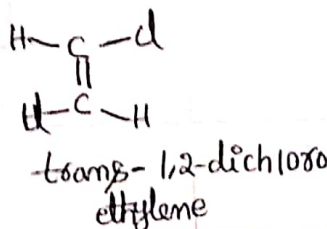 H-C-Cl
||
Cl-C-H
trans-1,2-dichloro
ethylene